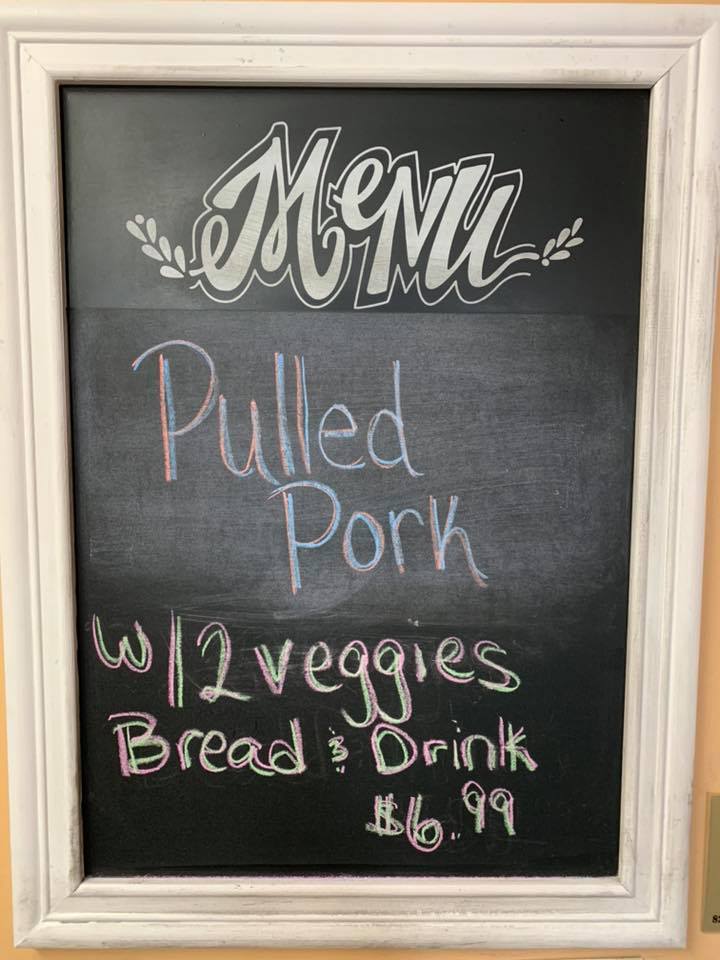 Menu
Pulled
Pork
w/2 veggies
Bread & Drink
$6.99